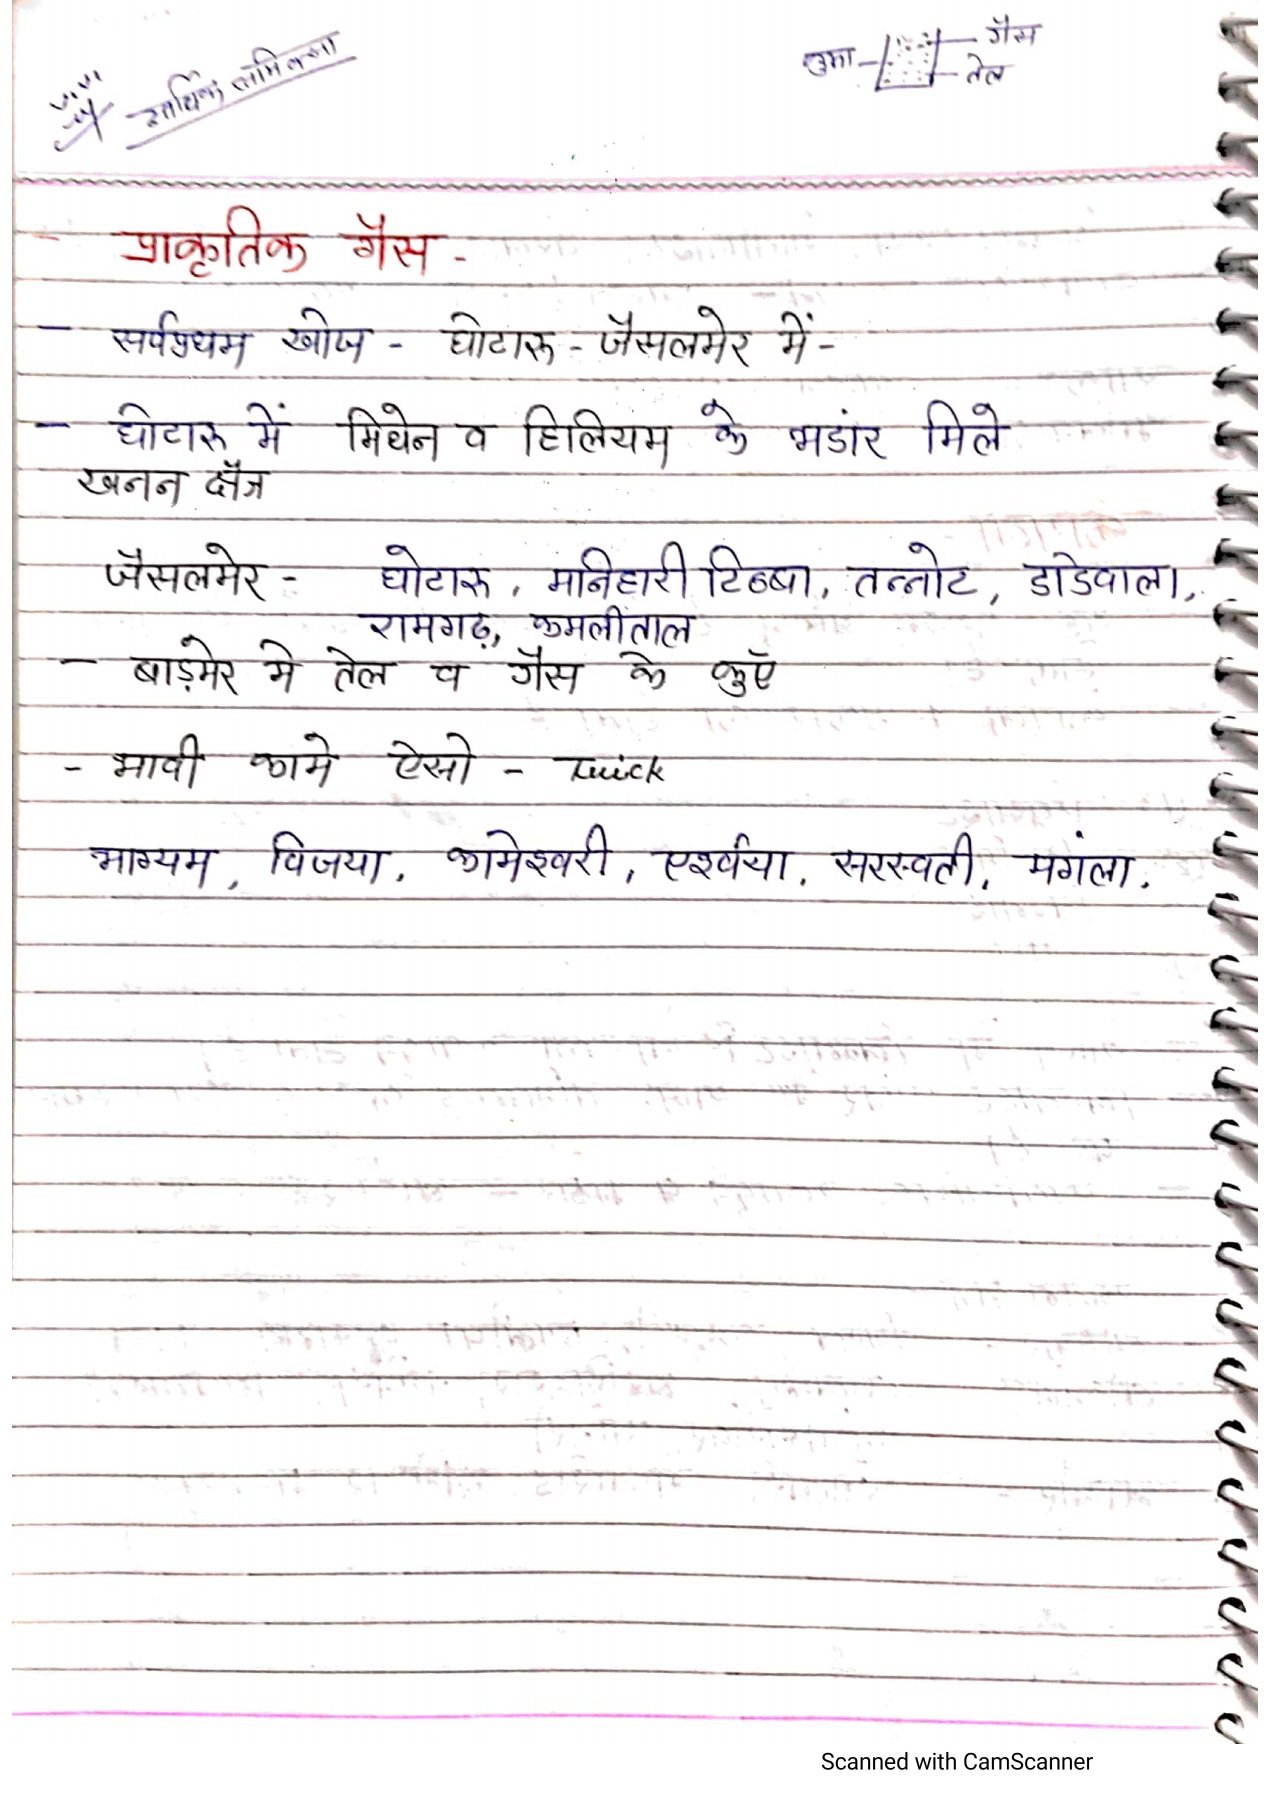 आर्थिक समिक्सा
कुआ
गैस
तेल
प्राकृतिक गैस -
- सर्वप्रथम खोज - घोटारू - जैसलमेर में -
- घोटारू में मिथेन व हिलियम के भडांर मिले
खनन क्षैत्र
जैसलमेर - घोटारू, मनिहारी टिब्बा, तन्नोट, डांडेवाला,
रामगढ़, कमलीताल
- बाड़मेर मे तेल व गैस के कुएँ
- भावी कामे ऐसो - Trick
भाग्यम, विजया, कामेश्वरी, एश्र्वया, सरस्वती, मगंला.
Scanned with CamScanner